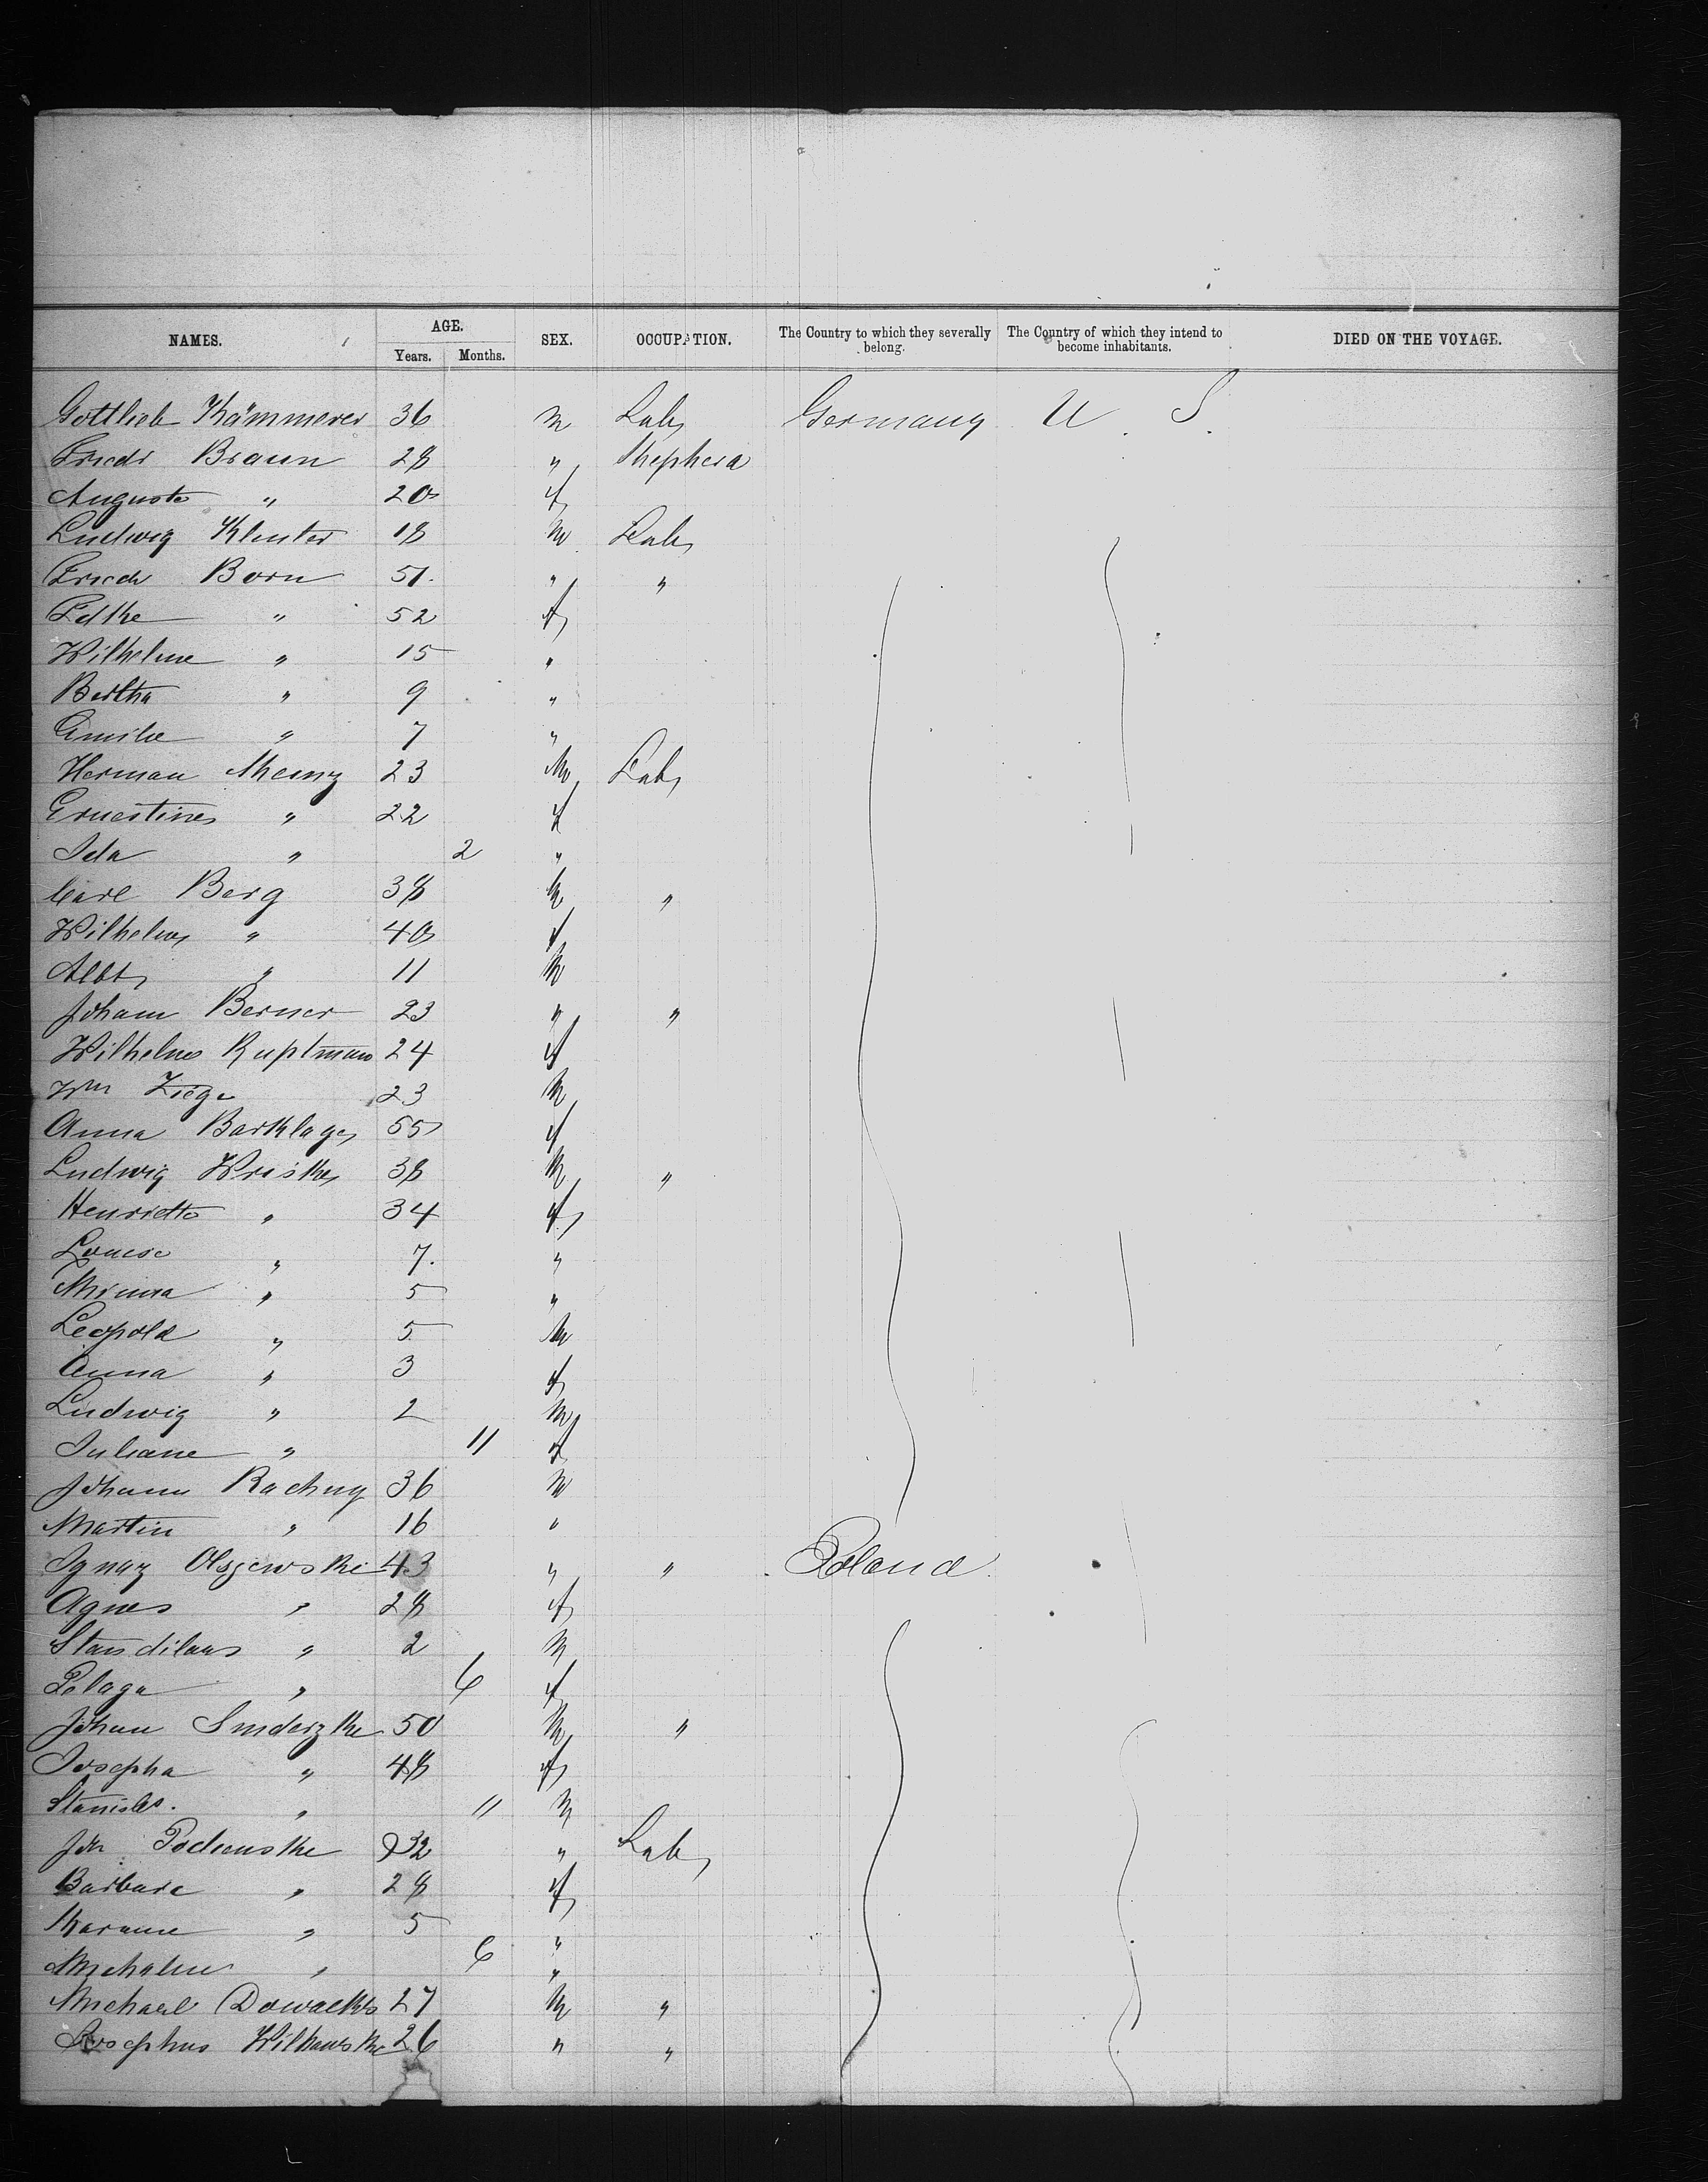 NAMES. AGE. SEX. OCCUPATION. The Country to which they severally belong. The Country of which they intend to become inhabitants. DIED ON THE VOYAGE.
Years. Months.
Gottlieb Kämmerer 36 m Lab Germany U. S.
Friedr Braun 28 " Shepherd
Auguste " 20 f
Ludwig Kluster 18 m Lab
Friedr Born 51. " "
Edke " 52 f
Wilhelme " 15 "
Bertha " 9 "
Emilie " 7 "
Herman 23 m Lab
Ernestine " 22 f
Ida " 2 "
Carl Berg 38 m "
Wilhelm " 40 f
Albt " 11 m
Johann Berner 23 " "
Wilhelme Ruptmann 24 f
Wm Ziege 23 m
Anna Barklage 55 f
Ludwig Wriske 38 m "
Henriette " 34 f
Louise " 7. "
Minna " 5 "
Leopold " 5 m
Anna " 3 f
Ludwig " 2 m
Juliane " 11 f
Johann Rachuy 36 m
Martin " 16 "
Ignaz Olszewski 43 " " Poland
Agnes " 28 f
Standilaus " 2 m
Pelaga " 6 f
Johan Smderzke 50 m "
Josepha " 48 f
Stanisls. " 11 m
Joh Podienske 32 " Lab
Barbara " 28 f
" 5 "
Michaline " 6 "
Michael 27 m "
Josephus Wilkowske 26 " "